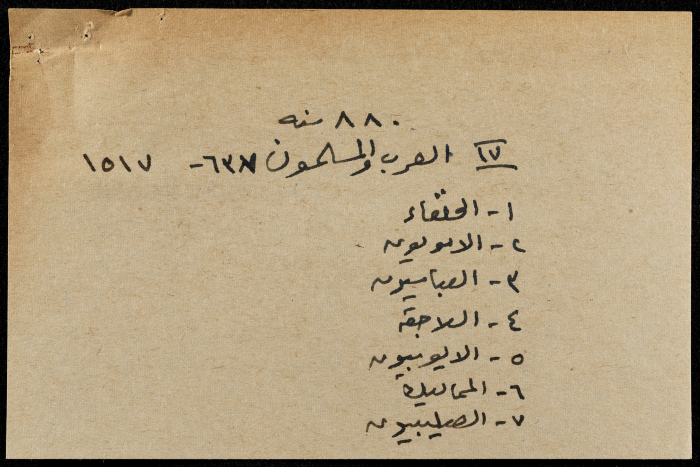 ٨٨٠ سنه
IV العرب والمسلمون ٦٣٧ - ١٥١٧
١ - الخلفاء
٢ - الامويون
٣ - العباسيون
٤ - السلاجقه
٥ - الايوبيون
٦ - المماليك
٧ - الصليبيون